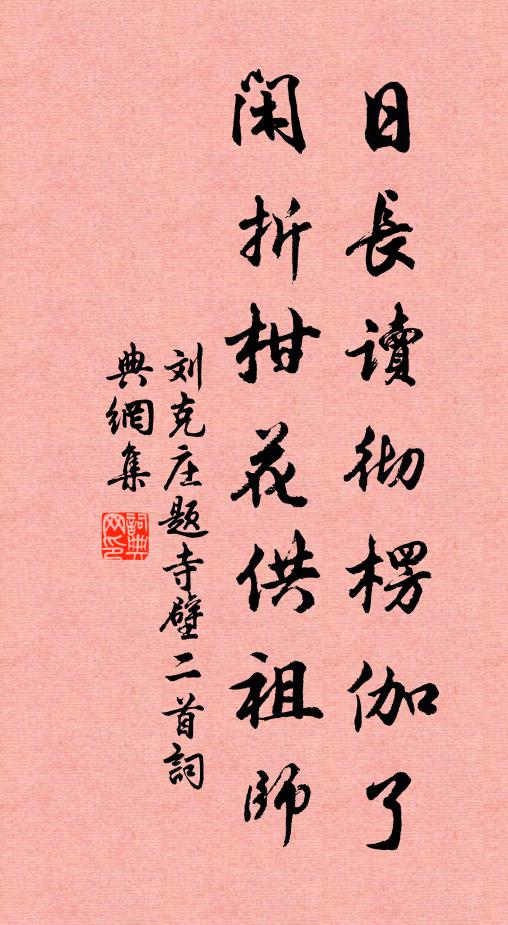 日長讀彻楞伽了
閑折柑花供祖師
刘克庄題寺壁二首詞
典網集
詞典網印